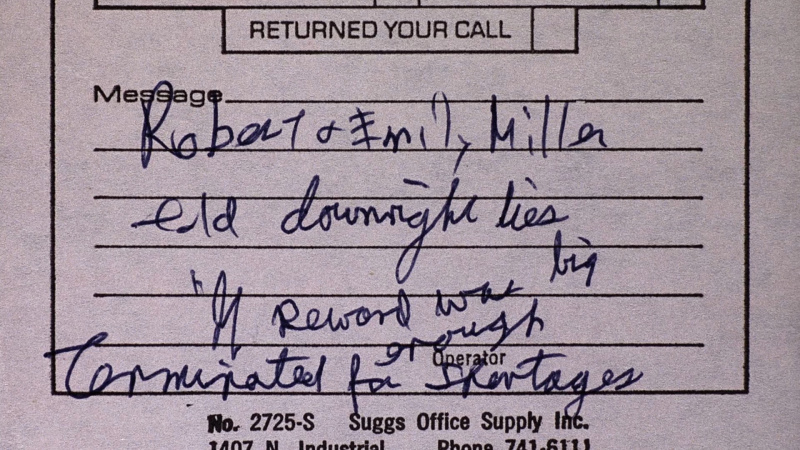 RETURNED YOUR CALL
Message
Robert & Emily Miller
told downright lies
"If reward was big
enough
Operator
Terminated for Shortages
No. 2725-S Suggs Office Supply Inc.
1407 N. Industrial Phone 741-6111